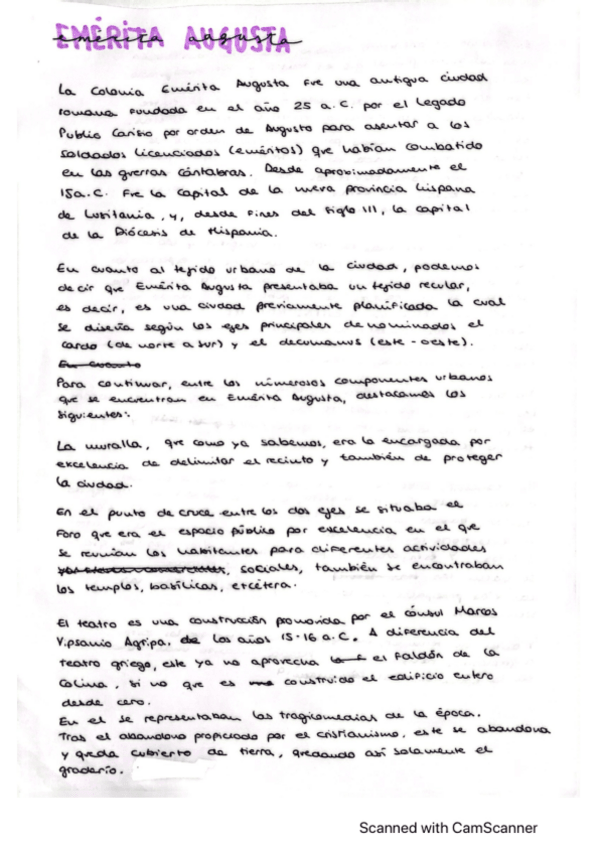 EMÉRITA AUGUSTA
emérita augusta
La Colonia Emérita Augusta fue una antigua ciudad
romana fundada en el año 25 a.C. por el legado
Publio Carisio por orden de Augusto para asentar a los
soldados licenciados (eméritos) que habían combatido
en las guerras cántabras. Desde aproximadamente el
15 a.C. fue la capital de la nueva provincia hispana
de Lusitania, y, desde fines del siglo III, la capital
de la Diócesis de Hispania.
En cuanto al tejido urbano de la ciudad, podemos
decir que Emérita Augusta presentaba un tejido regular,
es decir, es una ciudad previamente planificada la cual
se diseña según los ejes principales denominados el
cardo (de norte a sur) y el decumanus (este - oeste).
En cuanto
Para continuar, entre los númerosos componentes urbanos
que se encuentran en Emérita Augusta, destacamos los
siguientes:
La muralla, que como ya sabemos, era la encargada por
excelencia de delimitar el recinto y también de proteger
la ciudad.
En el punto de cruce entre los dos ejes se situaba el
Foro que era el espacio público por excelencia en el que
se reunían los habitantes para diferentes actividades
sociales, también se encontraban
los templos, basílicas, etcétera.
El teatro es una construcción promovida por el cónsul Marcos
Vipsanio Agripa, de los años 15-16 a.C. A diferencia del
teatro griego, este ya no aprovecha el faldón de la
colina, si no que es construido el edificio entero
desde cero.
En el se representaban las tragicomedias de la época.
Tras el abandono propiciado por el cristianismo, este se abandona
y queda cubierto de tierra, quedando así solamente el
graderío.
Scanned with CamScanner